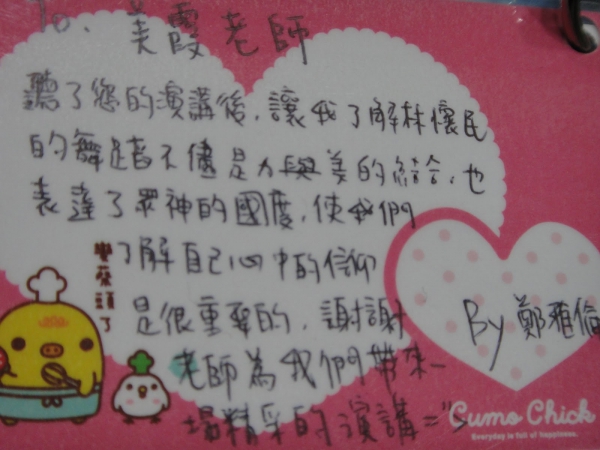 To. 美霞老師
聽了您的演講後，讓我了解林懷民
的舞蹈不僅是力與美的結合，也
表達了眾神的國度，使我們
了解自己心中的信仰
是很重要的，謝謝
老師為我們帶來一
場精采的演講=">
By 鄭雅倫
變菜頭了
Cumo Chick
Everyday is full of happiness.